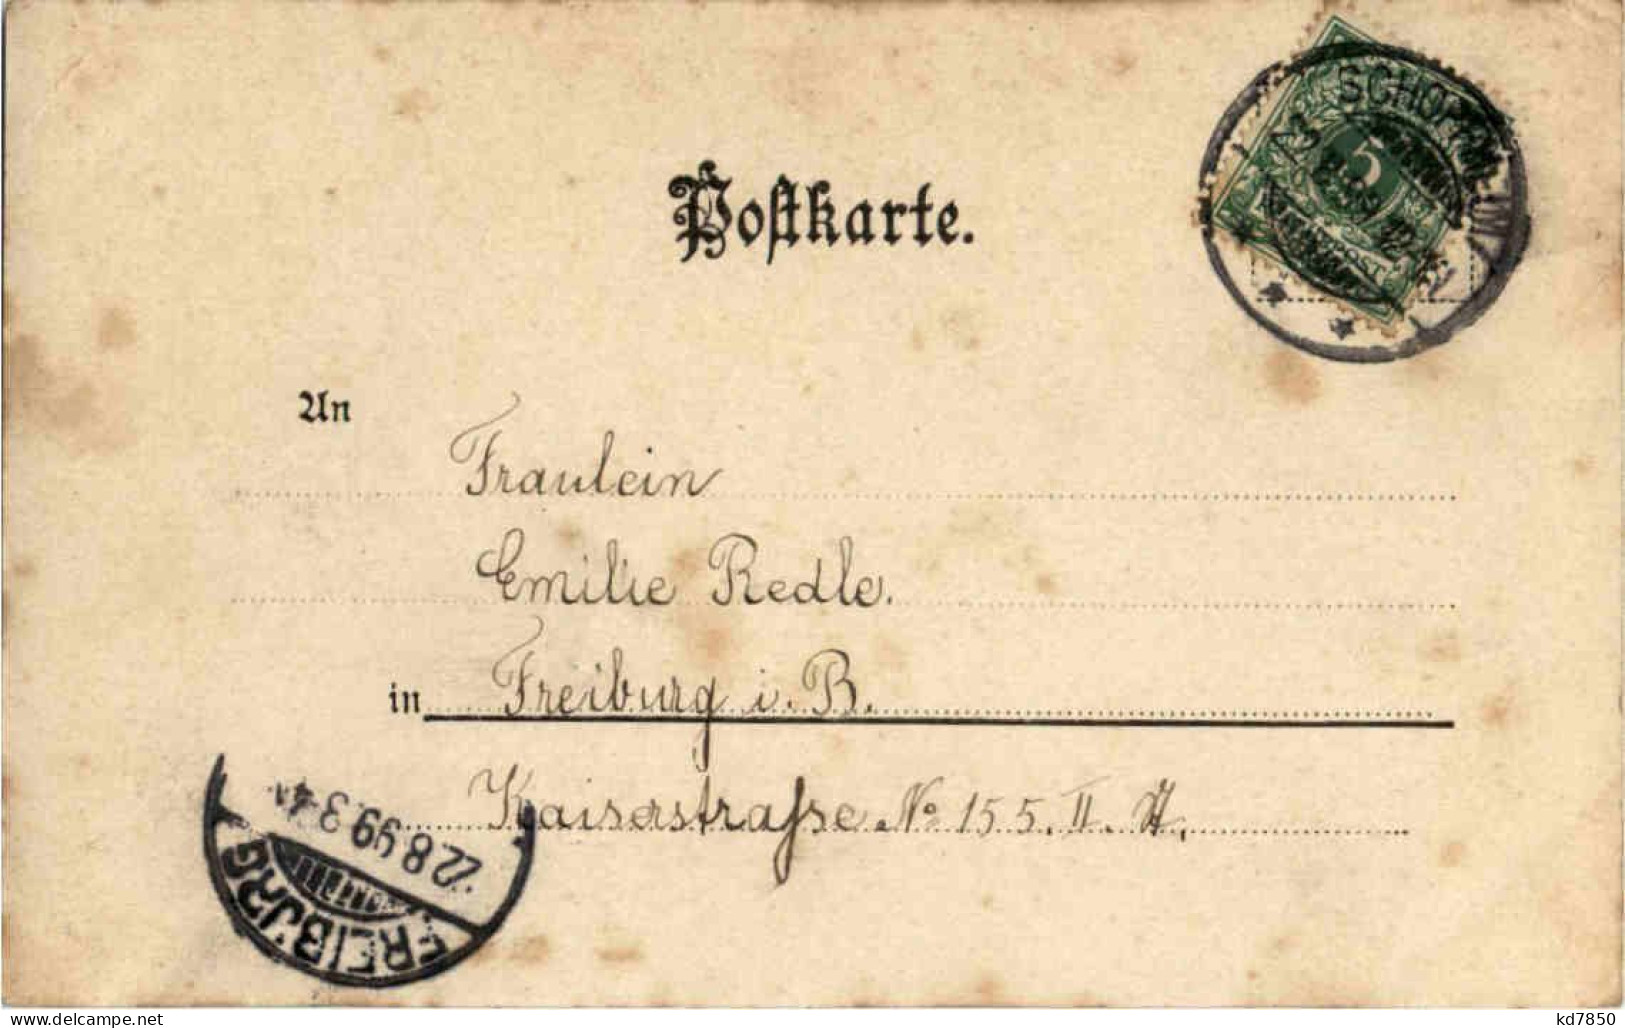 SCHOPFHEIM
5
REICHSPOST
Postkarte.
An
Fraulein
Emilie Redle.
in Freiburg i. B.
Kaiserstrasse No 155. II. St.
22.8.99.3-4N.
FREIBURG
www.delcampe.net
kd7850